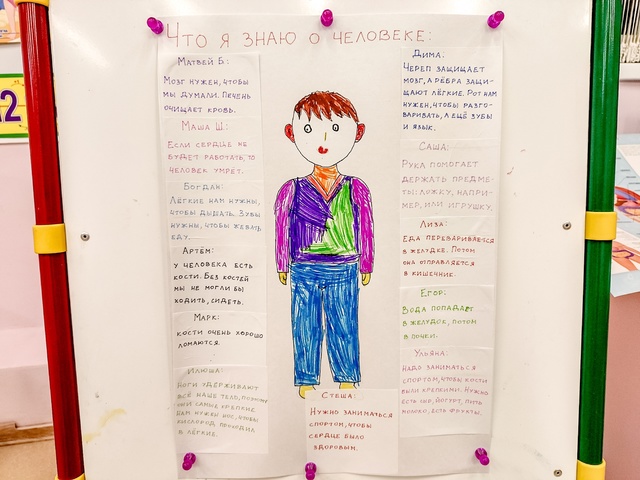 Что я знаю о человеке:
Матвей Б:
Мозг нужен, чтобы
мы думали. Печень
очищает кровь.
Маша Ш:
Если сердце не
будет работать, то
человек умрет.
Богдан:
Лёгкие нам нужны,
чтобы дышать. Зубы
нужны, чтобы жевать
еду.
Артём:
У человека есть
кости. Без костей
мы не могли бы
ходить, сидеть.
Марк:
Кости очень хорошо
ломаются.
Илюша:
Ноги удерживают
всё наше тело, поэтому
они самые крепкие.
Нам нужен нос, чтобы
кислород проходил
в лёгкие.
Стеша:
Нужно заниматься
спортом, чтобы
сердце было
здоровым.
Дима:
Череп защищает
мозг, а рёбра защи-
щают лёгкие. Рот нам
нужен, чтобы разго-
варивать, а ещё зубы
и язык.
Саша:
Рука помогает
держать предме-
ты: ложку, напри-
мер, или игрушку.
Лиза:
Еда переваривается
в желудке. Потом
она отправляется
в кишечник.
Егор:
Вода попадает
в желудок, потом
в почки.
Ульяна:
Надо заниматься
спортом, чтобы кости
были крепкими. Нужно
есть сыр, йогурт, пить
молоко, есть фрукты.
12